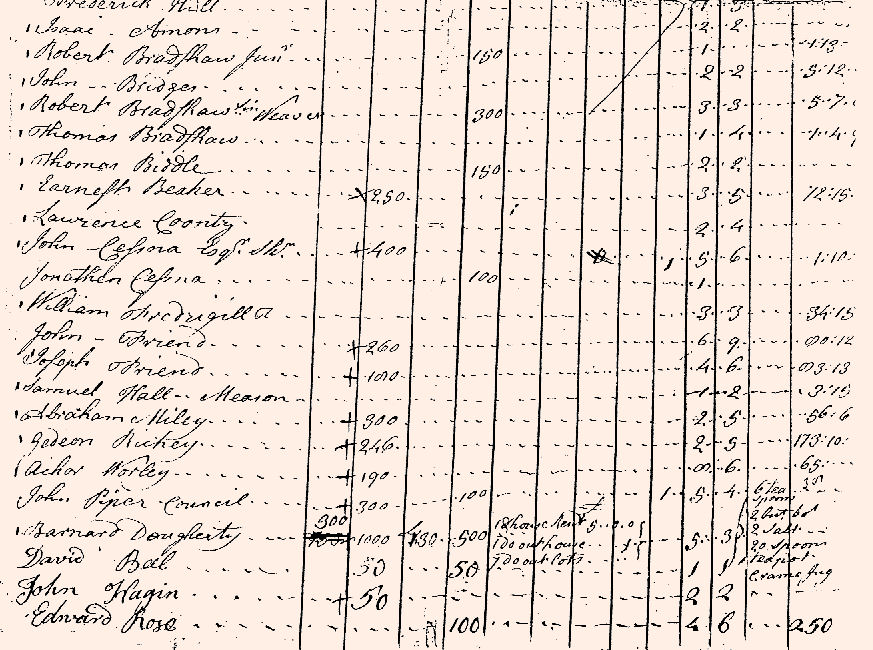 Frederick Hill 1 3
Isaac Amons 2 2
Robert Bradshaw Junr 150 1 1.13
John Bridges 2 2 3.12
Robert Bradshaw Senr Weaver 300 3 3 5.7
Thomas Bradshaw 1 4 1.4
Thomas Biddle 150 2 2
Earnest Beaker 250 3 5 12.15
Lawrence Coonty 2 4
John Cessna Esqr Shr + 400 1 5 6 1.10
Jonathen Cessna 100 1
William Fredrigill 3 3 34.15
John Friend + 260 6 9
Joseph Friend + 100 4 6
Samuel Hall Meason 1 2 3.15
Abraham Miley + 300 2 5 56.6
Gedeon Richey + 246 2 5 173.10
Achor Worley + 190 6 65
John Piper Council + 300 100 1 5 4 6 tea spoons
300
Barnard Dougherty 1000 500 5 3
18 house Rent 5.0.0
1 do out house
1 do out lots
2 Salt
20 spoons
teapot
Creame Jug
David Bal 50 50 1 1
John Hagin + 50 2 2
Edward Rose 100 4 6 250